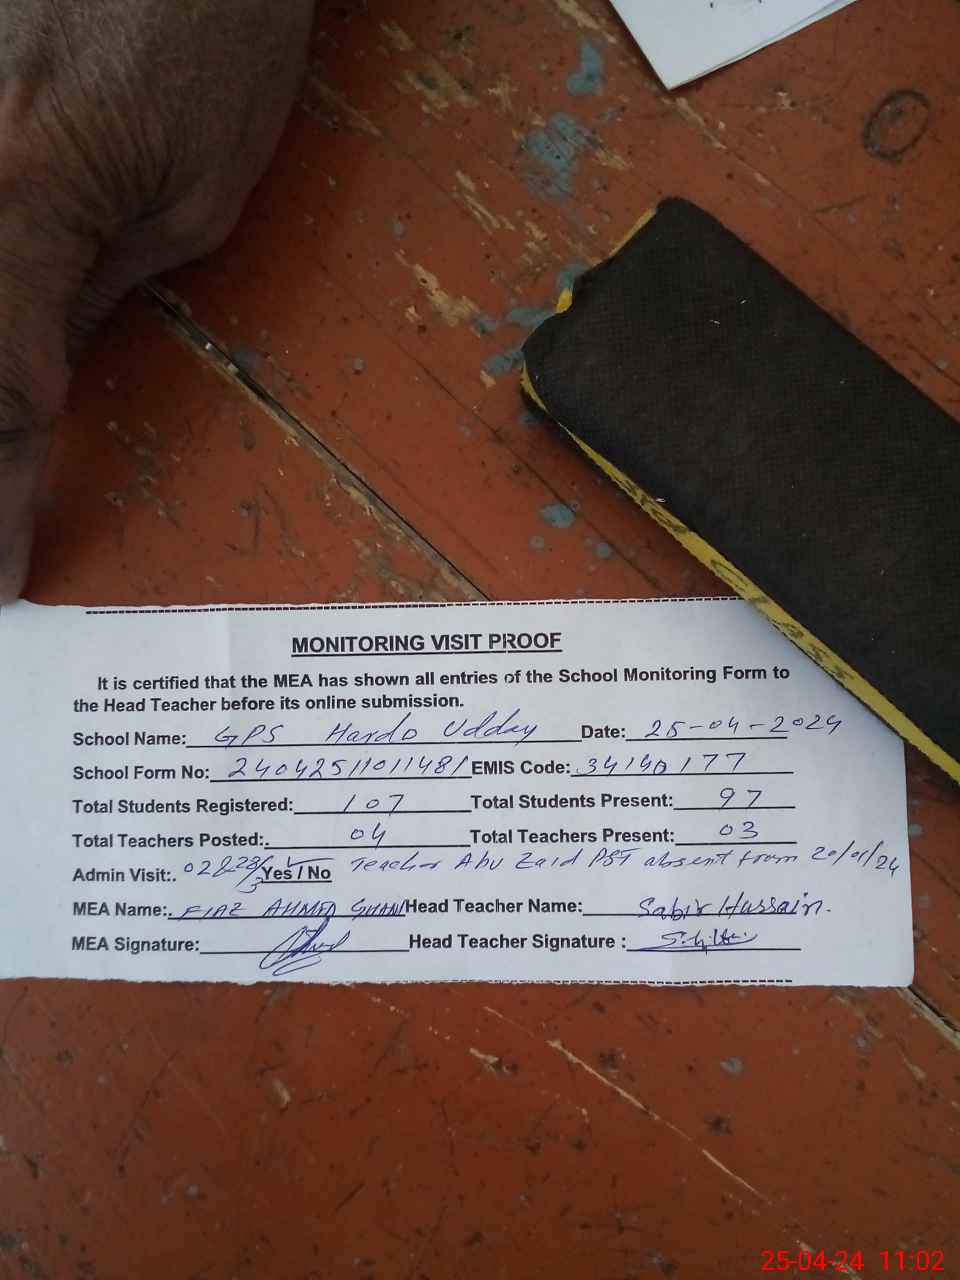 MONITORING VISIT PROOF
It is certified that the MEA has shown all entries of the School Monitoring Form to
the Head Teacher before its online submission.
School Name: GPS Hardo Udday Date: 25-04-2024
School Form No: 2404251101148/ EMIS Code: 177
Total Students Registered: 107 Total Students Present: 97
Total Teachers Posted: 04 Total Teachers Present: 03
Admin Visit: Yes / No Teacher Abu Zaid PST absent from 20/01/24
MEA Name: FIAZ AHMED SHAN Head Teacher Name: Sabir Hussain.
MEA Signature: Head Teacher Signature :
25-04-24 11:02